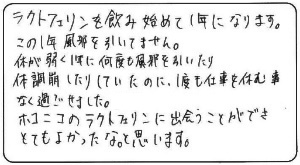 ラクトフェリンを飲み始めて1年になります。
この1年風邪を引いてません。
体が弱く1年に何度も風邪を引いたり
体調崩したりしていたのに、1度も仕事を休む事
なく過ごせました。
ホコニコのラクトフェリンに出会うことができ
とてもよかったなぁと思います。